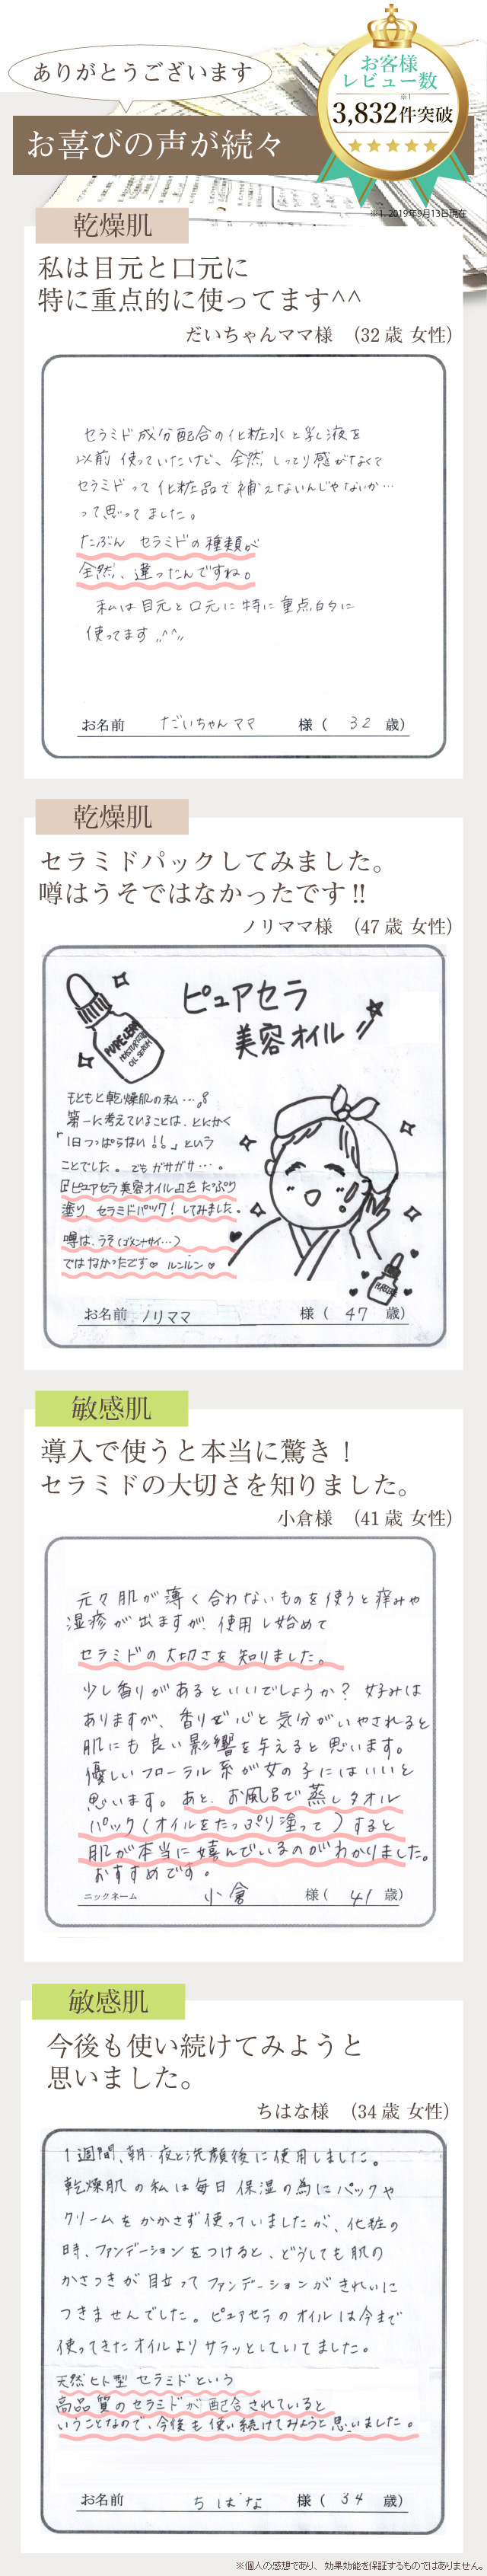 ありがとうございます
お客様
レビュー数
※1
3,832件突破
お喜びの声が続々
※1. 2019年9月13日現在
乾燥肌
私は目元と口元に
特に重点的に使ってます^^
だいちゃんママ様 (32歳 女性)
セラミド成分配合の化粧水と乳液を
以前使っていたけど、全然しっとり感がなくて
セラミドって化粧品で補えないんじゃないか…
って思ってました。
たぶん セラミドの種類が
全然、違ったんですね。
私は目元と口元に特に重点的に
使ってます〃^^〃
お名前 だいちゃんママ 様( 32 歳)
乾燥肌
セラミドパックしてみました。
噂はうそではなかったです!!
ノリママ様 (47歳 女性)
ピュアセラ
美容オイル
PURECERA
MOISTURIZING
OIL SERUM
もともと乾燥肌の私…
第一に考えていることは、とにかく
「1日つっぱらない!!」という
ことでした。でもガサガサ…。
『ピュアセラ美容オイル』をたっぷり
塗り、セラミドパック!してみました。
噂は、うそ(ゴメンナサイ…)
ではなかったです♡ ルンルン♡
お名前 ノリママ 様( 47 歳)
敏感肌
導入で使うと本当に驚き!
セラミドの大切さを知りました。
小倉様 (41歳 女性)
元々肌が薄く合わないものを使うと痒みや
湿疹が出ますが、使用し始めて
セラミドの大切さを知りました。
少し香りがあるといいでしょうか?好みは
ありますが、香りで心と気分がいやされると
肌にも良い影響を与えると思います。
優しいフローラル系が女の子にはいいと
思います。あと、お風呂で蒸しタオル
パック(オイルをたっぷり塗って)すると
肌が本当に嬉んでいるのがわかりました。
おすすめです。
ニックネーム 小倉 様( 41 歳)
敏感肌
今後も使い続けてみようと
思いました。
ちはな様 (34歳 女性)
1週間、朝・夜と洗顔後に使用しました。
乾燥肌の私は毎日保湿の為にパックや
クリームをかかさず使っていましたが、化粧の
時、ファンデーションをつけると、どうしても肌の
かさつきが目立ってファンデーションがきれいに
つきませんでした。ピュアセラのオイルは今まで
使ってきたオイルよりサラッとしていてました。
天然ヒト型 セラミドという
高品質のセラミドが配合されていると
いうことなので、今後も使い続けてみようと思いました。
お名前 ちはな 様( 34 歳)
※個人の感想であり、効果効能を保証するものではありません。